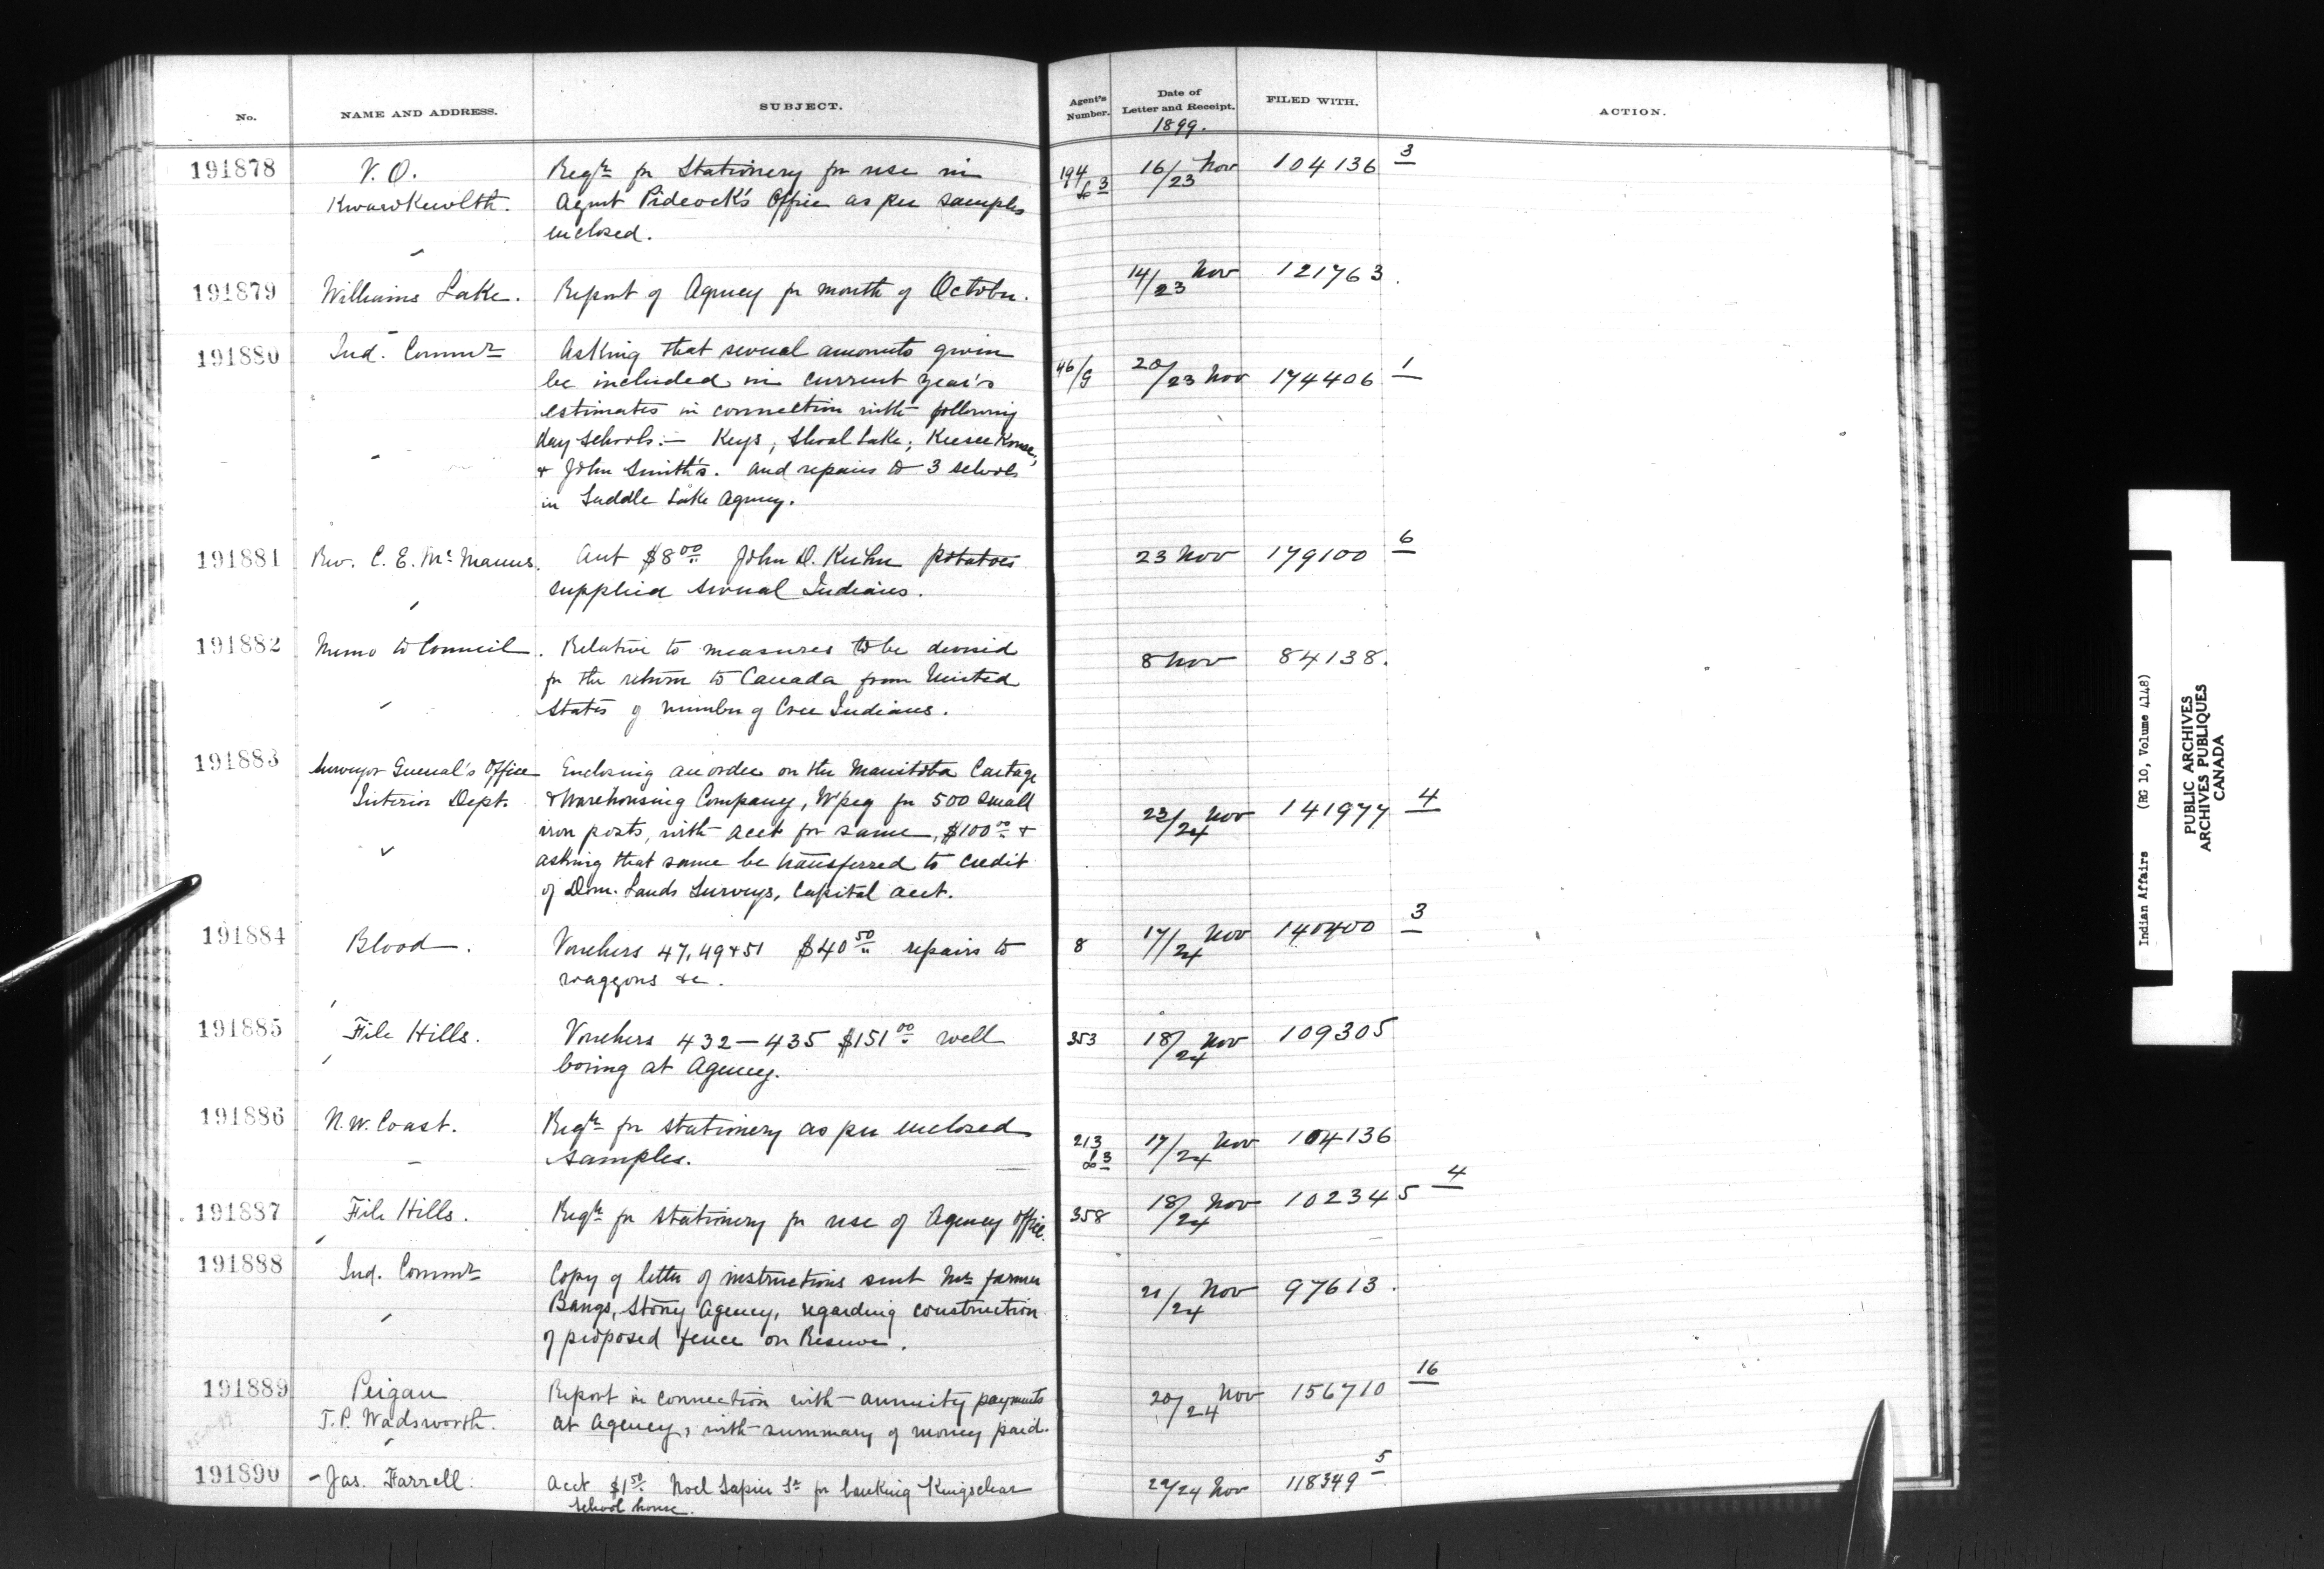 No. NAME AND ADDRESS. SUBJECT. Agent's Number. Date of Letter and Receipt. FILED WITH. ACTION.
1899.
191878 V. O. Reqn for Stationery for use in 194 16/23 Nov 104136 3
Kwawkewlth. Agent Pidcock's Office as per samples
enclosed.
191879 Williams Lake. Report of Agency for month of October. 14/23 Nov 121763.
191880 Ind. Commr Asking that several amounts given 46/9 20/23 Nov 174406 1
be included in current year's
estimates in connection with following
day schools:— Keys, Shoal Lake,
& John Smith's. and repairs to 3 schools
in Saddle Lake Agency.
191881 Rev. C. E. McManus. Acct $8 00 John D. Kuhn potatoes 23 Nov 179100 6
supplied several Indians.
191882 Memo to Council. Relative to measures to be devised 8 Nov 84138.
for the return to Canada from United
States of number of Cree Indians.
191883 Surveyor General's Office Enclosing an order on the Manitoba Cartage
Interior Dept. & Warehousing Company, W'peg for 500 small 23/24 Nov 141977 4
iron posts, with acct for same, $100 00 &
asking that same be transferred to credit
of Dom. Lands Surveys, Capital acct.
191884 Blood. Vouchers 47, 49 & 51 $40 50 repairs to 8 17/24 Nov 140400 3
waggons &c.
191885 File Hills. Vouchers 432 — 435 $151 00 well 353 18/24 Nov 109305
boring at Agency.
191886 N. W. Coast. Reqn for stationery as per enclosed 213 17/24 Nov 104136
samples.
191887 File Hills. Reqn for stationery for use of Agency Office. 358 18/24 Nov 102345 4
191888 Ind. Commr Copy of letter of instructions sent Mr farmer 21/24 Nov 97613.
Bangs, Stony Agency, regarding construction
of proposed fence on Reserve.
191889 Peigan Report in connection with annuity payments 20/24 Nov 156710 16
T. P. Wadsworth. at Agency, with summary of money paid.
191890 Jas. Farrell. Acct $1 50 Noel Sapier Sr for banking Kingsclear 22/24 Nov 118349 5
school house.
Indian Affairs (RG 10, Volume 4148)
PUBLIC ARCHIVES
ARCHIVES PUBLIQUES
CANADA